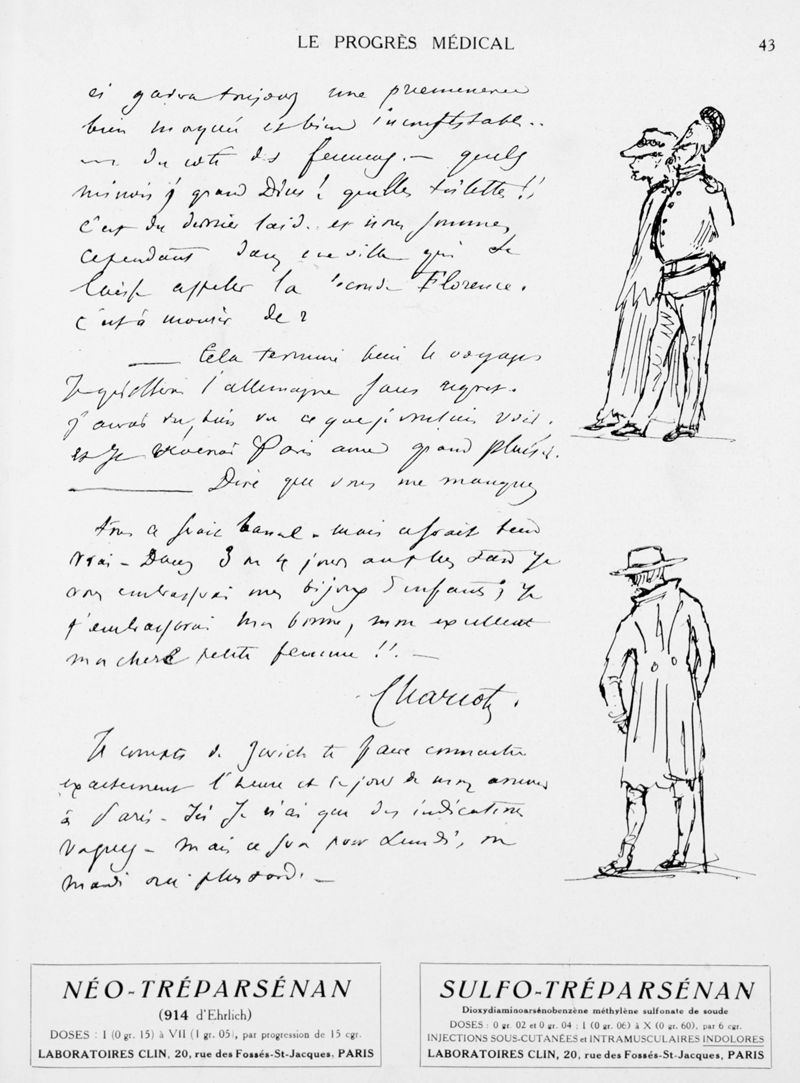 LE PROGRÈS MÉDICAL
43
et gardera toujours une
bien et bien incontestable..
du côté des femmes. — quels
minois grand Dieu! quelles toilettes!!
c'est du dernier laid.. et nous sommes
cependant dans une ville qui se
laisse appeler la seconde Florence.
c'est à mourir de
Cela terminé le voyage
Je l'allemagne sans regret.
j'aurai vu, bien vu ce que je voulais voir.
et Je Paris avec grand plaisir.
Dire que vous me manquez
tous ce serait banal. mais ce serait bien
vrai — Dans 3 ou 4 jours au plus tard Je
vous embrasserai mes bijoux d'enfants; Je
t'embrasserai ma bonne, mon excellente
ma chere petite femme!!. —
Charcot.
Je compte de Zurich te faire connaitre
exactement l'heure et le jour de mon arrivée
à Paris — Ici Je n'ai que des indications
vagues — mais ce sera pour Lundi, ou
mardi au plus tard. —
NÉO-TRÉPARSÉNAN
(914 d'Ehrlich)
DOSES : I (0 gr. 15) à VII (1 gr. 05), par progression de 15 cgr.
LABORATOIRES CLIN, 20, rue des Fossés-St-Jacques, PARIS
SULFO-TRÉPARSÉNAN
Dioxydiaminoarsénobenzène méthylène sulfonate de soude
DOSES : 0 gr. 02 et 0 gr. 04 ; I (0 gr. 06) à X (0 gr. 60), par 6 cgr.
INJECTIONS SOUS-CUTANÉES et INTRAMUSCULAIRES INDOLORES
LABORATOIRES CLIN, 20, rue des Fossés-St-Jacques, PARIS